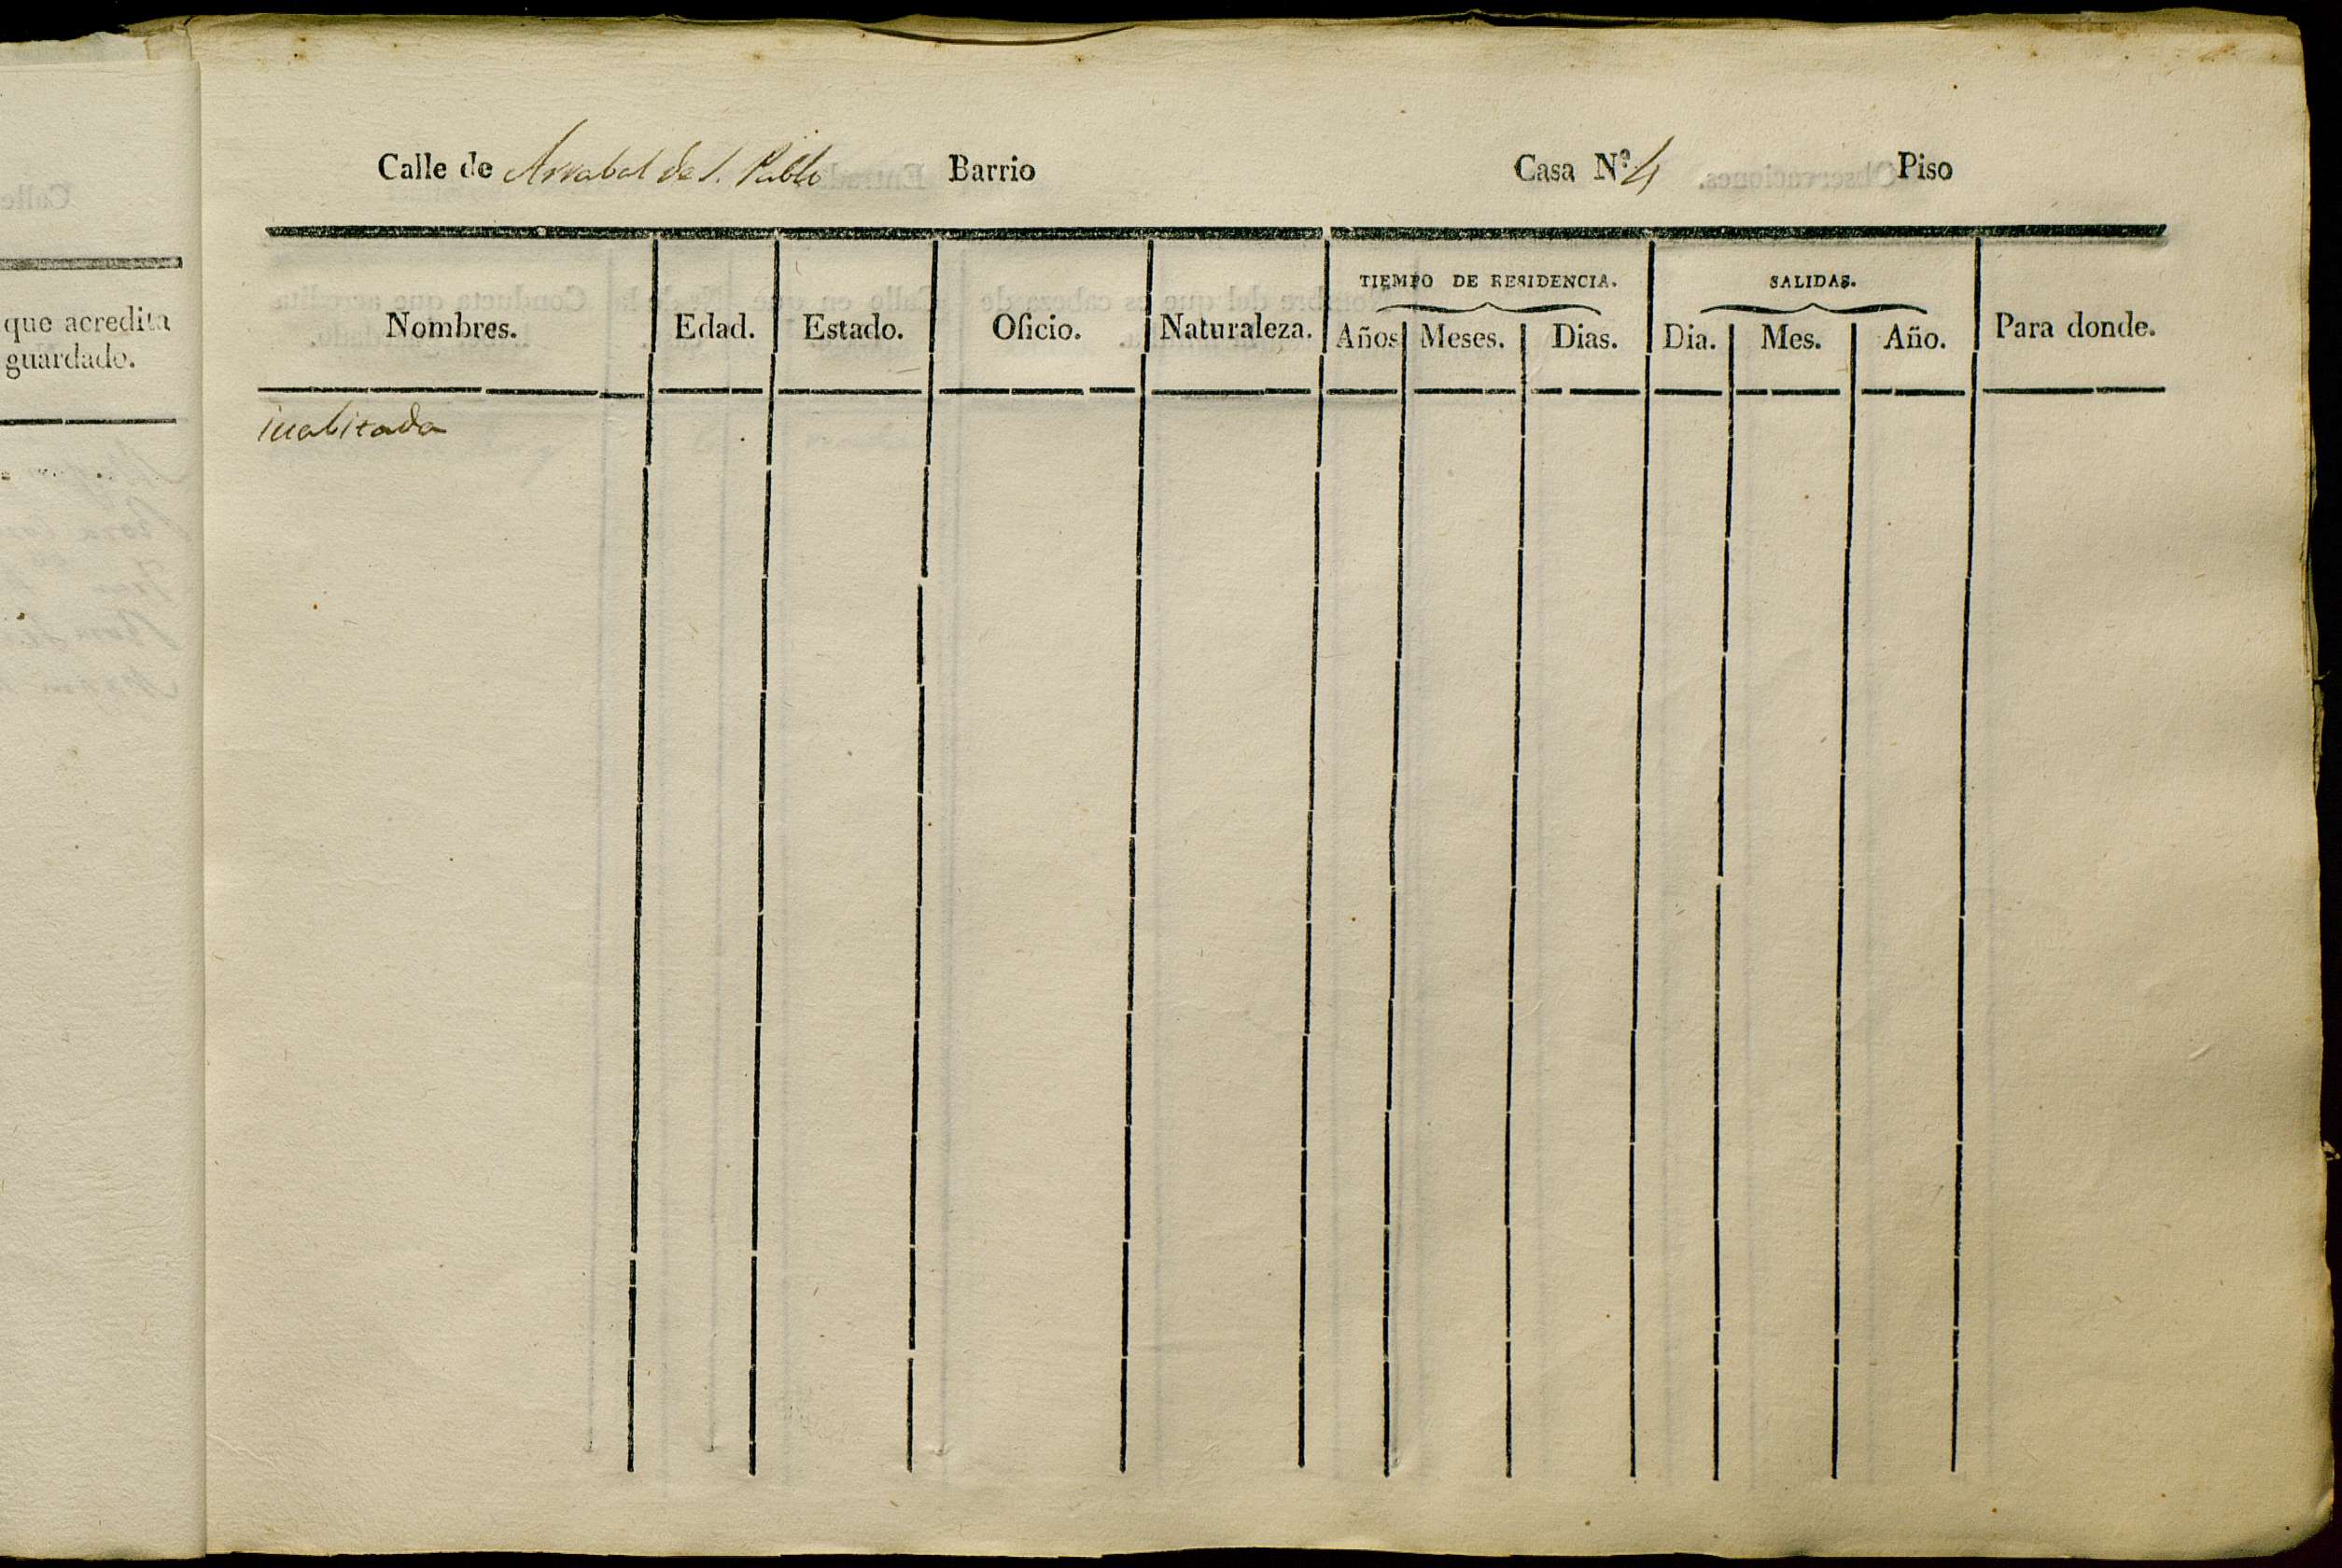 Calle de Arrabal de S. Pablo Barrio Casa Nº 4 Piso
que acredita
guardado.
TIEMPO DE RESIDENCIA. SALIDAS.
Nombres. Edad. Estado. Oficio. Naturaleza. Años Meses. Dias. Dia. Mes. Año. Para donde.
inabitada